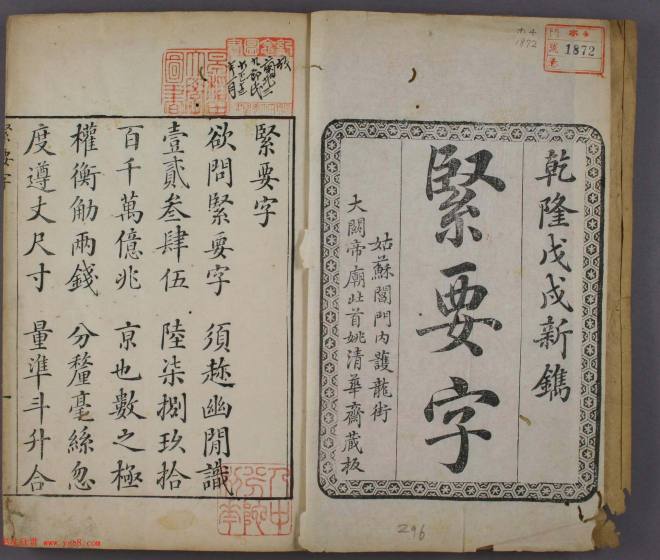 乾隆戊戌新鐫
緊要字
姑蘇閶門內護龍街
大關帝廟北首姚清華齋藏板
1872
1872
296
緊要字
欲問緊要字 須趂幽閒識
壹貳叁肆伍 陸柒捌玖拾
百千萬億兆 京也數之極
權衡觔兩錢 分釐毫絲忽
度遵丈尺寸 量準斗升合
緊要字
www.yg98.com